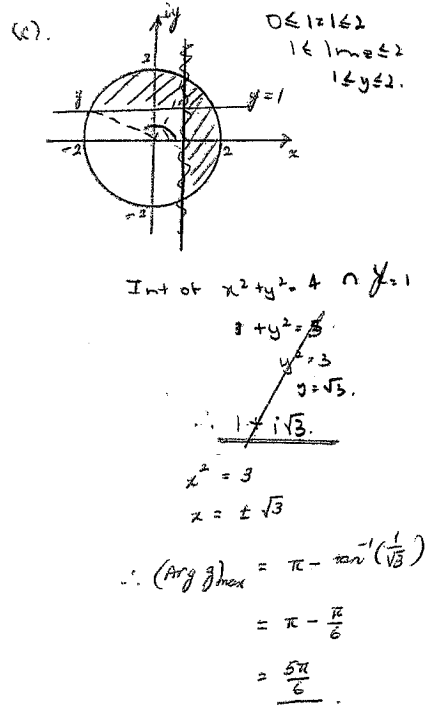 (c).
iy
0 ≤ |z| ≤ 2
1 ≤ Im z ≤ 2
1 ≤ y ≤ 2.
2
y
y = 1
-2
2
x
-2
Int of x² + y² = 4 ∩ y = 1
1 + y² = 3.
y² = 3
y = √3.
∴ 1 + i√3.
x² = 3
x = ± √3
∴ (Arg z)max = π - tan⁻¹(1/√3)
= π - π/6
= 5π/6.